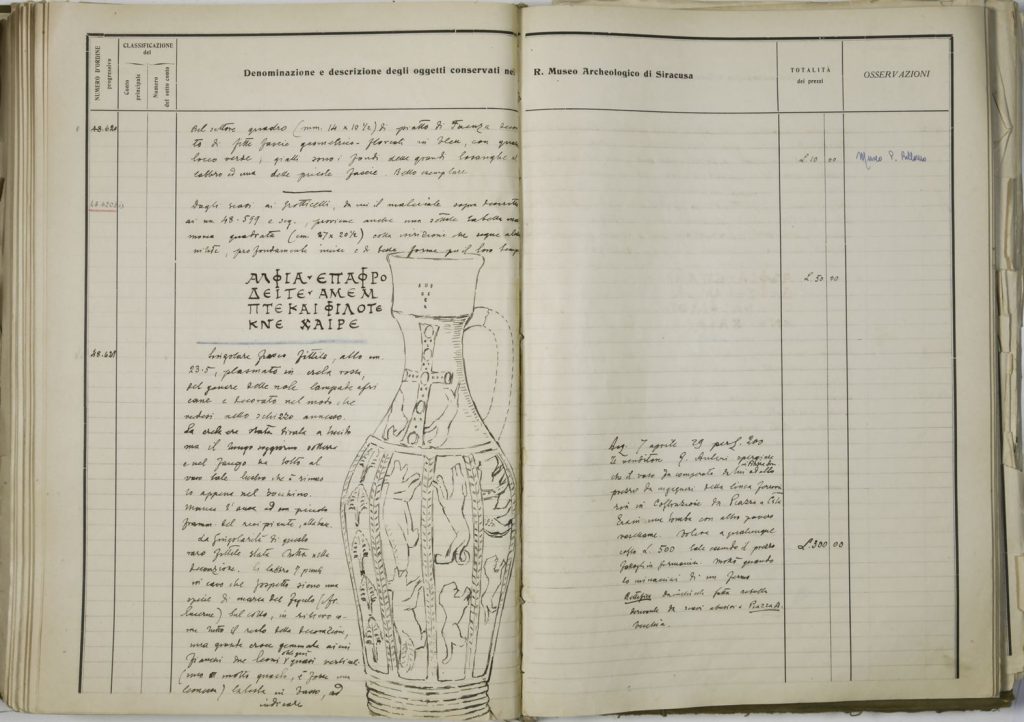 NUMERO D'ORDINE
progressivo
CLASSIFICAZIONE
del
Conto
principale
Numero
del sotto conto
Denominazione e descrizione degli oggetti conservati nel R. Museo Archeologico di Siracusa
TOTALITÀ
dei prezzi
OSSERVAZIONI
48.620
Bel settore quadro (mm. 14 x 10 ½) di piatto di Faenza
to di fitte fasce geometrico-floreali in bleu, con qualche
tocco verde; gialli sono i fondi delle grandi losanghe al
labbro ed una delle piccole fascie. Bello esemplare
L. 10 00
Museo P.
Dagli scavi ai Grotticelli, da cui il materiale sopra descritto
ai nn 48.599 e seg., proviene anche una sottile tabella mar
morea quadrata (cm. 27 x 20 ½) colla iscrizione che segue
profondamente incisa e di belle forme per il loro tempo
ΑΛΦΙΑ · ΕΠΑΦΡΟ
ΔΕΙΤΕ · ΑΜΕΜ
ΠΤΕ ΚΑΙ ΦΙΛΟΤΕ
ΚΝΕ ΧΑΙΡΕ
L. 50 00
48.621
Singolare vasco fittile, alto cm.
23.5, plasmato in creta rossa,
del genere delle note lampade afri
cane e decorato nel modo che
vedesi nello schizzo annesso.
La creta era stata tirata a lucido
ma il lungo soggiorno sotterra
e nel fango ha tolto al
vaso tale lustro che è rimas
to appena nel bocchino.
Manca l'ansa ed un piccolo
framm. del recipiente,
La singolarità di questo
raro fittile stata tutta nella
decorazione. Il labbro 7 punti
in cavo che sospetto siano una
specie di marca del figulo (cfr.
lucerne) Sul collo, in rilievo co
me tutto il resto della decorazione,
una grande croce gemmata ai cui
fianchi due leoni obliqui quasi verticali
(uno molto guasto, è forse una
leonessa) la testa in basso, ad
indicare
Acq. 7 aprile 29 per L. 200
Il venditore G.
che il vaso fu comperato da lui ad alto
prezzo da ingegneri della linea ferrovia
ria in costruzione da Piazza a
Era in una tomba con altro povero
vasellame. Voleva a qualunque
costo L. 500 tale essendo il prezzo
quando
lo minacciai di un fermo
fatto
da scavi abusivi a Piazza A.
L. 200 00